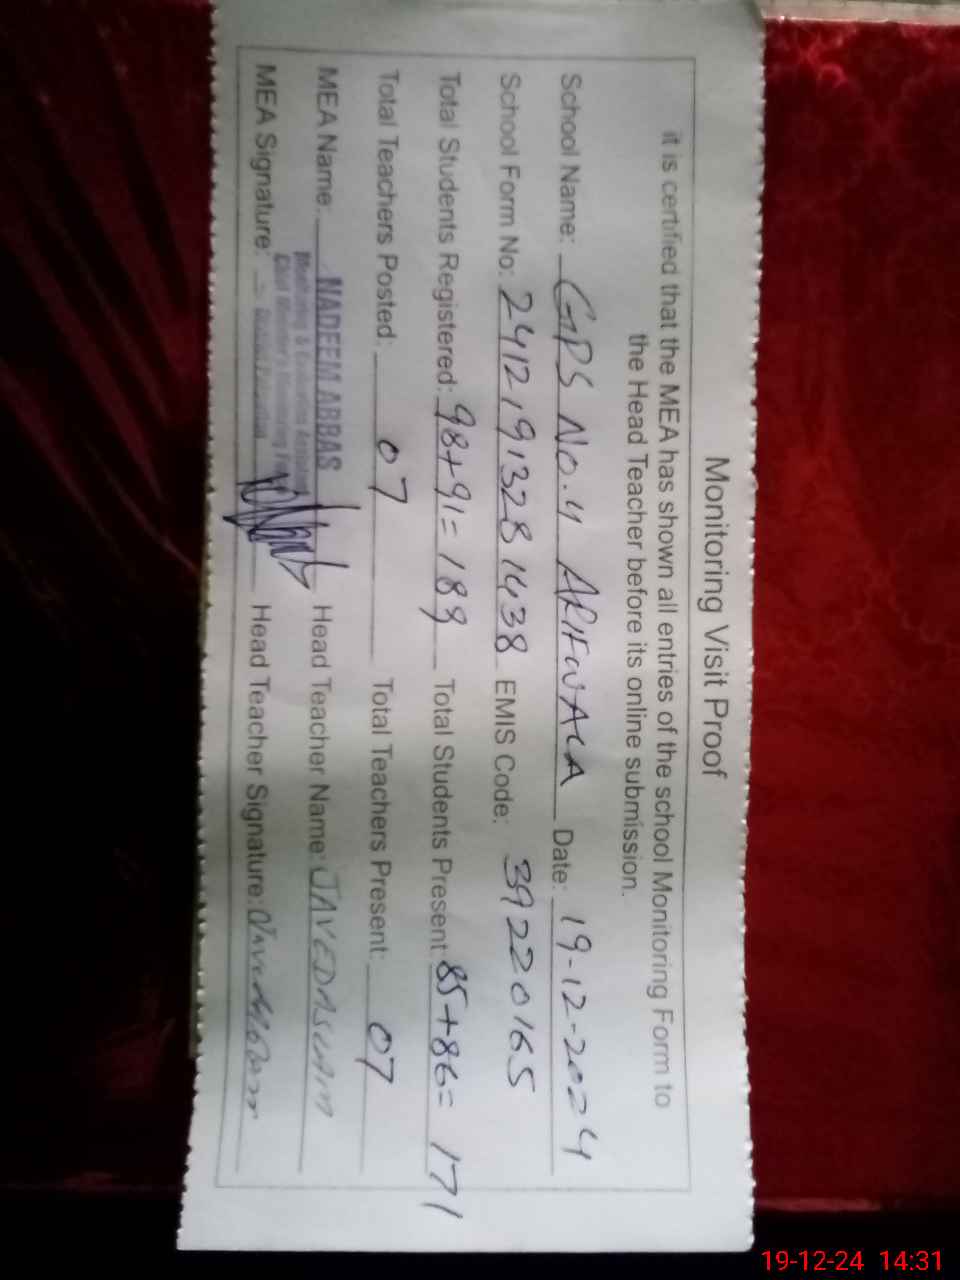 Monitoring Visit Proof
it is certified that the MEA has shown all entries of the school Monitoring Form to
the Head Teacher before its online submission.
School Name: GPS No.4 ARIFWALA Date: 19-12-2024
School Form No: 24121913281438 EMIS Code: 39220165
Total Students Registered: 98+91=189 Total Students Present: 85+86= 171
Total Teachers Posted: 07 Total Teachers Present: 07
MEA Name: NADEEM ABBAS Head Teacher Name: JAVED ASLAM
Monitoring & Evaluation Assistant
Chief Minister's Monitoring
MEA Signature: Head Teacher Signature:
19-12-24 14:31